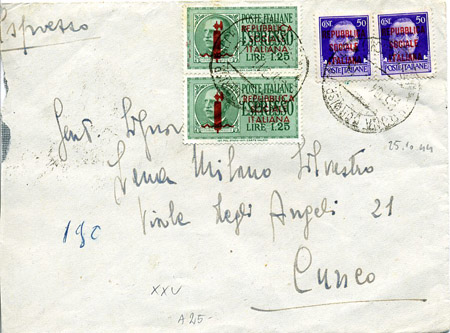 Espresso
POSTE ITALIANE
REPUBBLICA
ESPRESSO
ITALIANA
LIRE 1,25
POSTE ITALIANE
REPUBBLICA
ESPRESSO
ITALIANA
LIRE 1,25
CENT 50
REPUBBLICA
SOCIALE
ITALIANA
POSTE ITALIANE
CENT 50
REPUBBLICA
SOCIALE
ITALIANA
POSTE ITALIANE
25.10.44
Milano Silvestro
Viale degli Angeli 21
Cuneo
190
XXV
A 25-